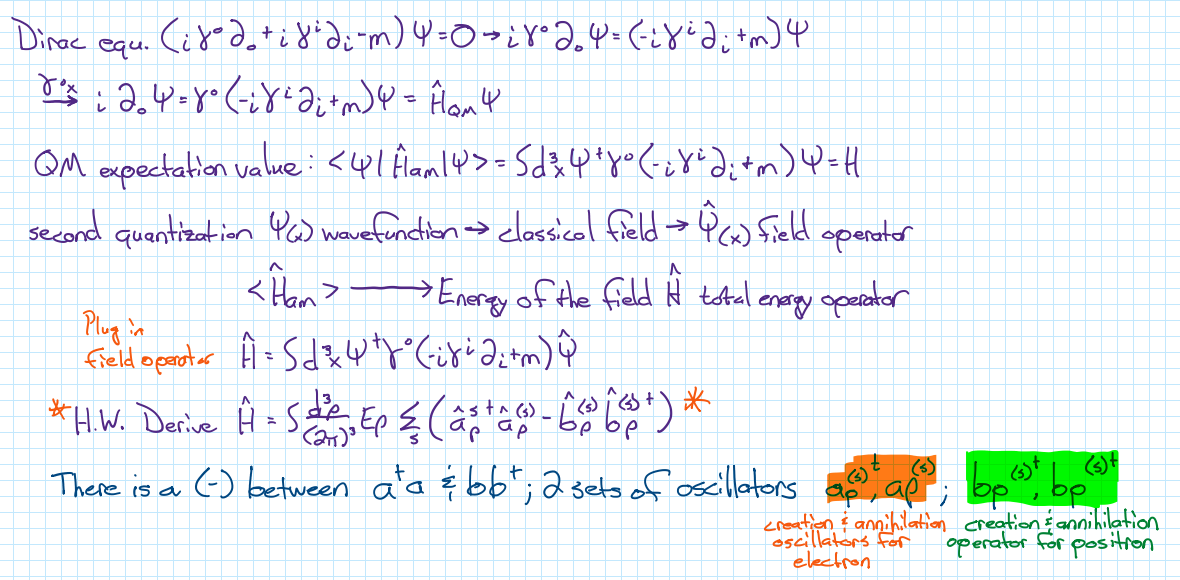 Dirac equ. (iγ⁰∂₀+iγⁱ∂ᵢ-m)Ψ=0→iγ⁰∂₀Ψ=(-iγⁱ∂ᵢ+m)Ψ
γ⁰x→ i∂₀Ψ=γ⁰(-iγⁱ∂ᵢ+m)Ψ = Ĥ_QM Ψ
QM expectation value: <Ψ|Ĥ_QM|Ψ> = ∫d³x Ψ†γ⁰(-iγⁱ∂ᵢ+m)Ψ=H
second quantization Ψ(x) wavefunction → classical field → Ψ̂(x) field operator
<Ĥ_QM> ⟶ Energy of the field Ĥ total energy operator
Plug in
field operator Ĥ = ∫d³x Ψ†γ⁰(-iγⁱ∂ᵢ+m)Ψ̂
*H.W. Derive Ĥ = ∫ d³p/(2π)³ Ep Σ_s (â_p^s† â_p^(s) - b̂_p^(s) b̂_p^(s)†) *
There is a (-) between a†a & bb†; 2 sets of oscillators a_p^(s)†, a_p^(s); b_p^(s)†, b_p^(s)†
creation & annihilation oscillators for electron
creation & annihilation operator for positron